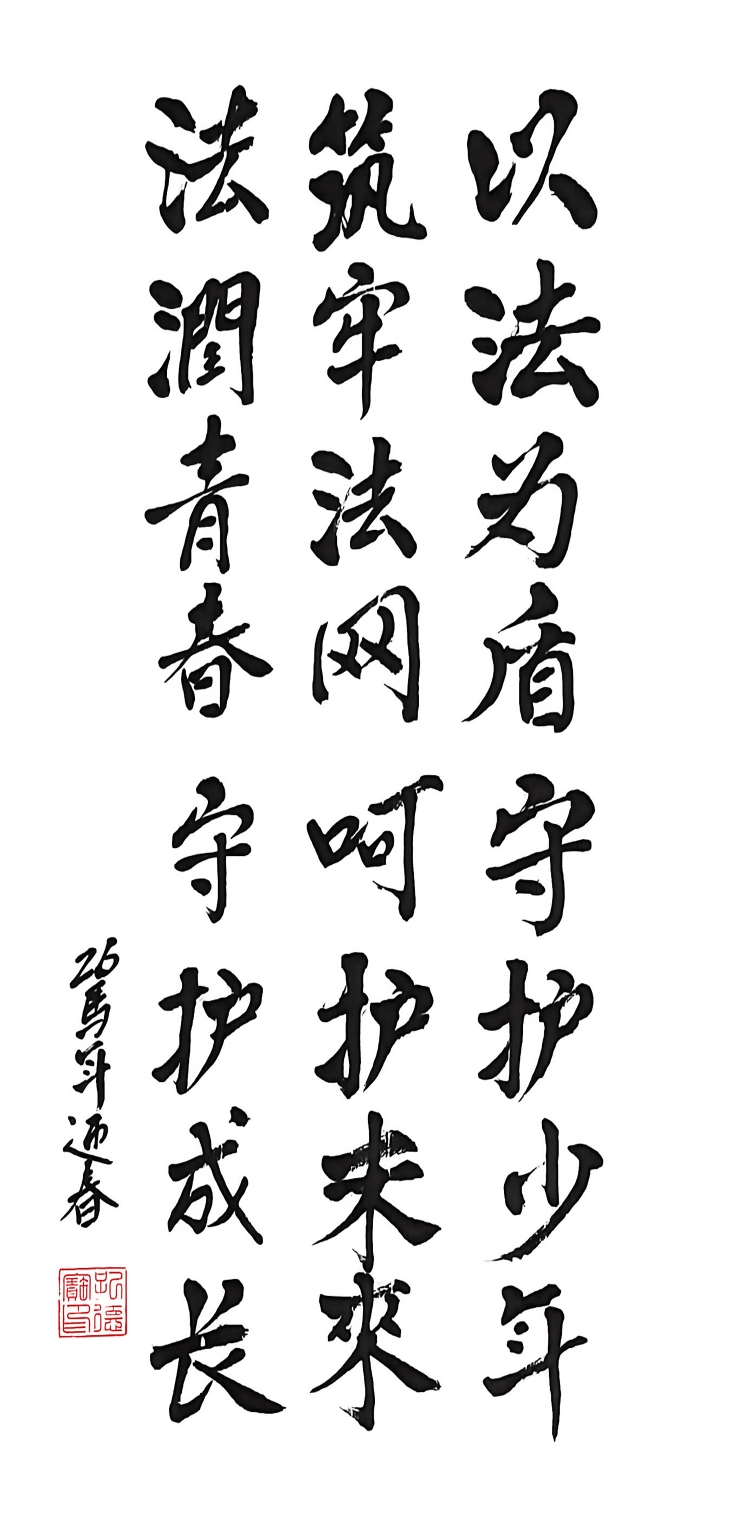 以法为盾 守护少年
筑牢法网 呵护未來
法潤青春 守护成长
26馬年迎春